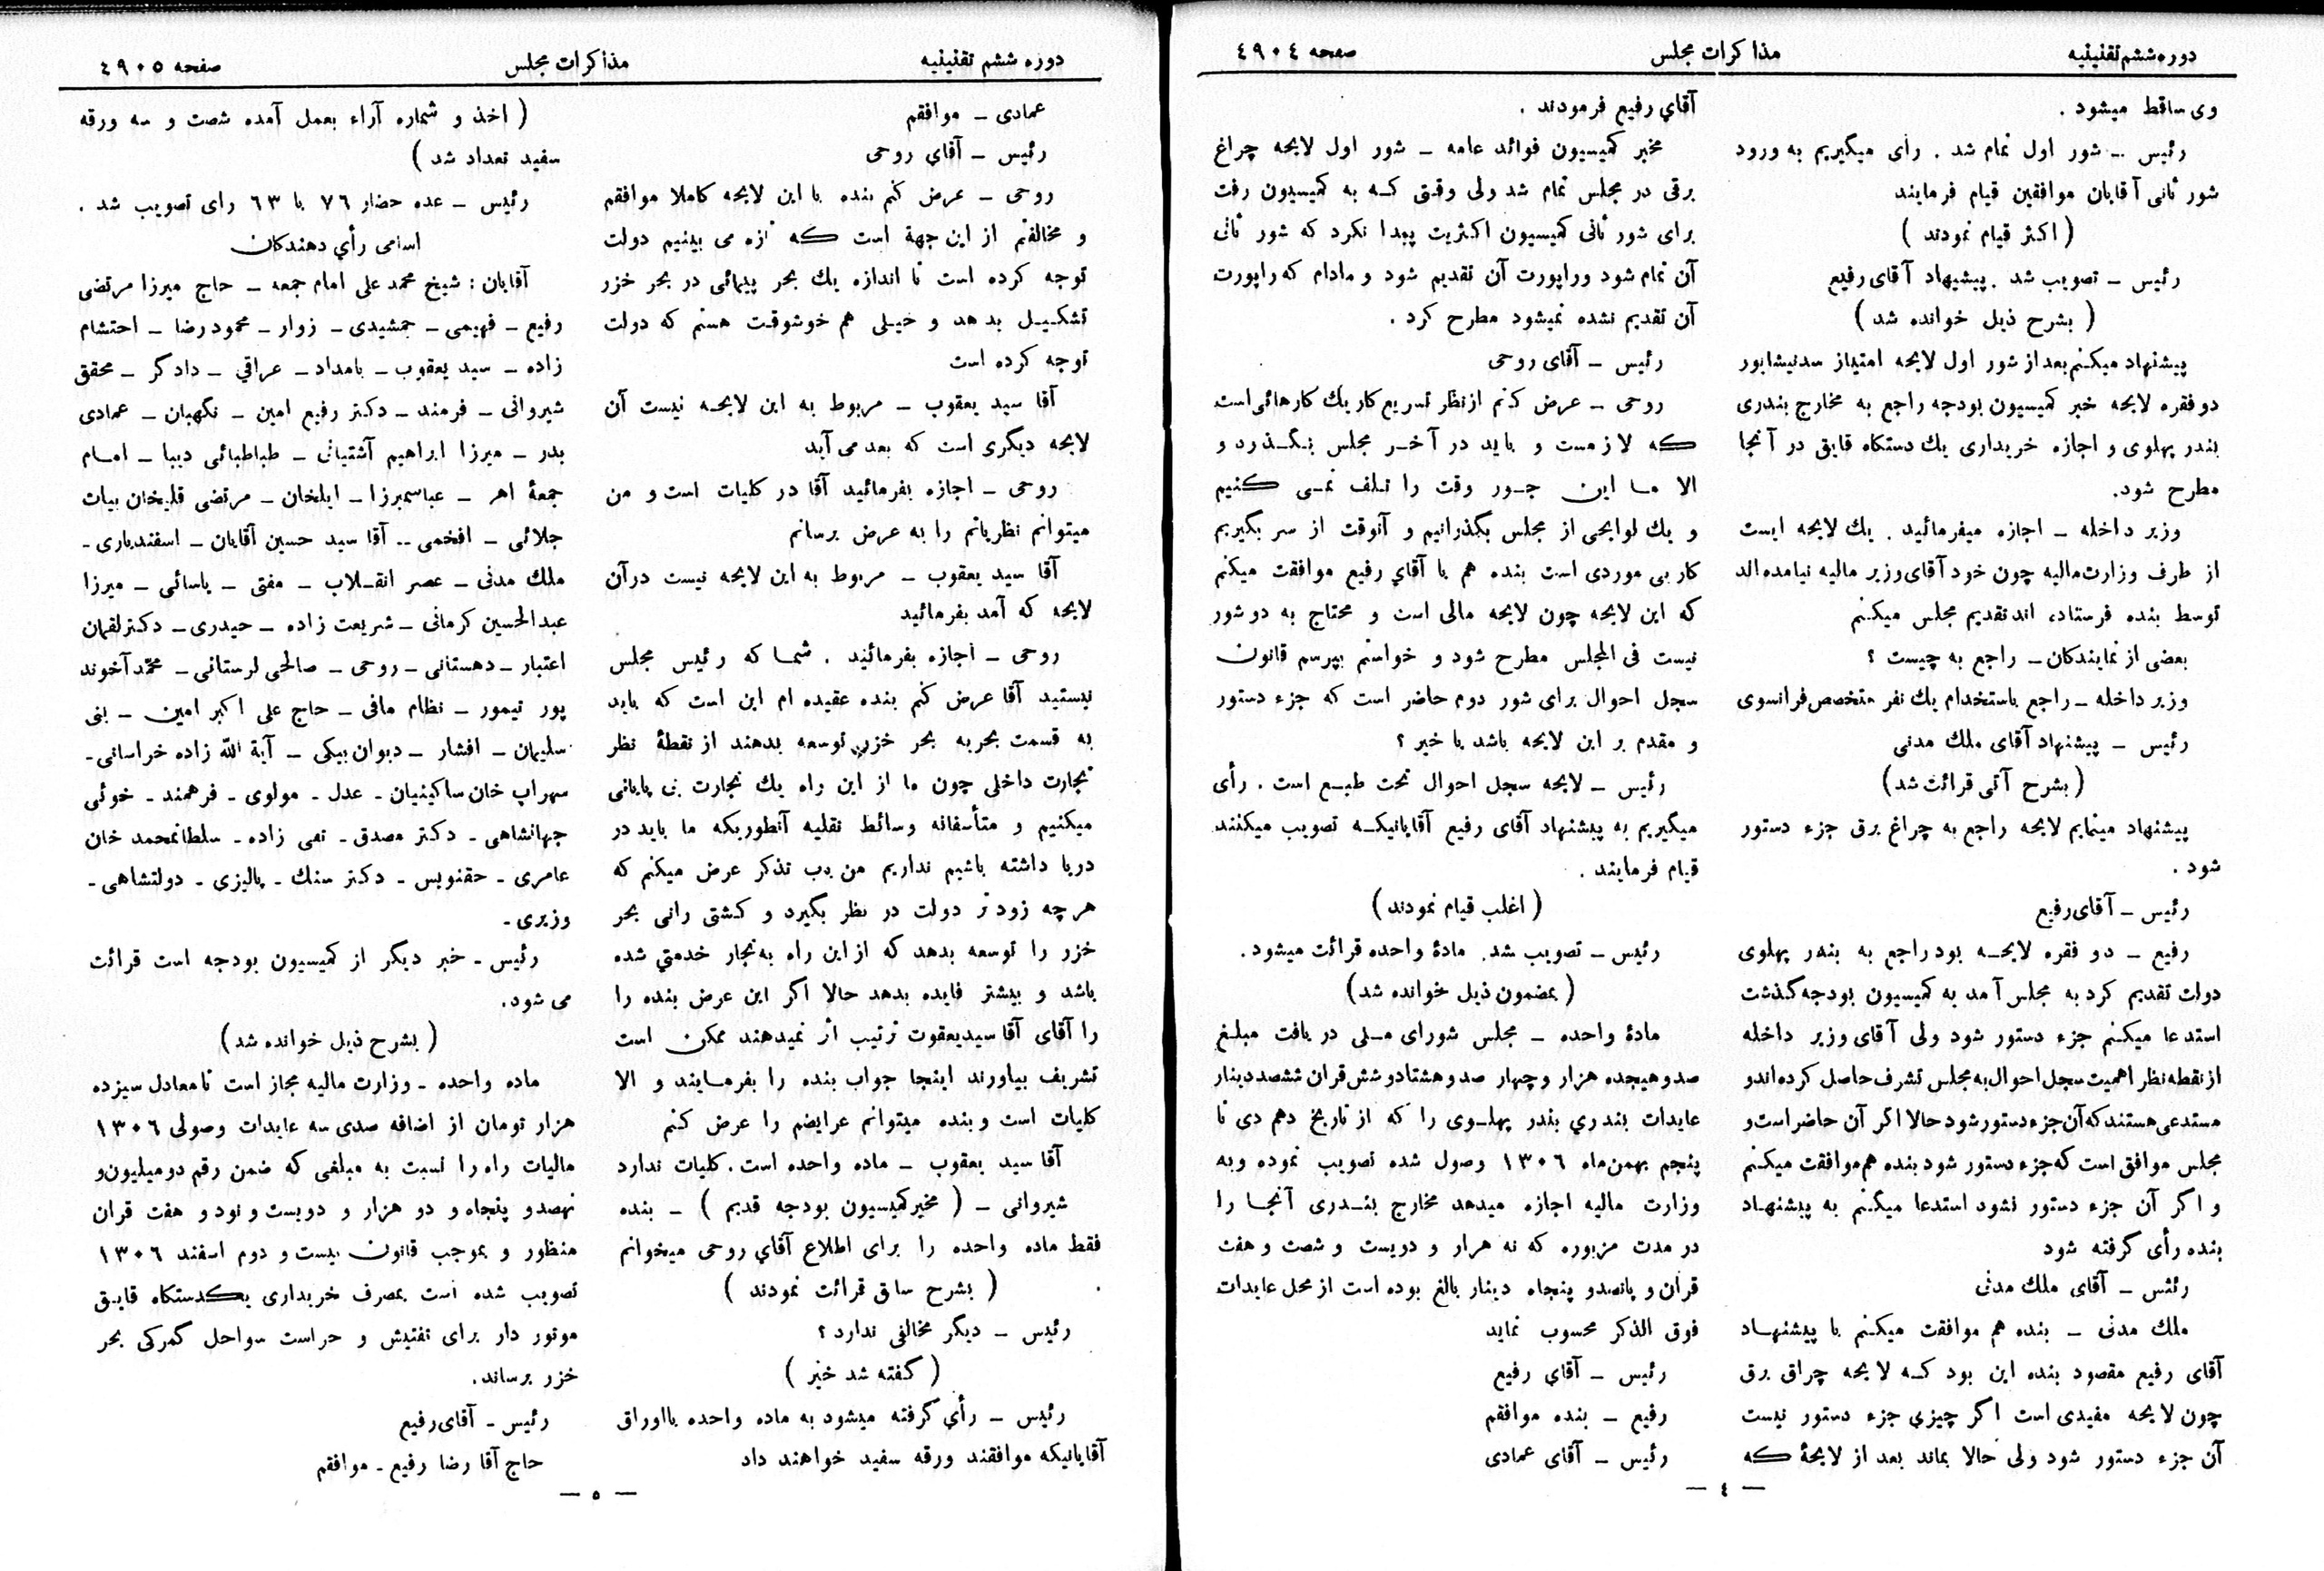 دوره ششم تقنینیه
مذاکرات مجلس
صفحه ٤٩٠٤
وی ساقط میشود .
رئیس ـ شور اول تمام شد . رأی میگیریم به ورود
شور ثانی آقایان موافقین قیام فرمایند
( اکثر قیام نمودند )
رئیس ـ تصویب شد . پیشنهاد آقای رفیع
( بشرح ذیل خوانده شد )
پیشنهاد میکنم بعد از شور اول لایحه امتیاز معدنیشابور
دو فقره لایحه خبر کمیسیون بودجه راجع به مخارج بندری
بندر پهلوی و اجازه خریداری یك دستگاه قایق در آنجا
مطرح شود.
وزیر داخله ـ اجازه میفرمائید . یك لایحه ایست
از طرف وزارت مالیه چون خود آقای وزیر مالیه نیامده‌اند
توسط بنده فرستاده اند تقدیم مجلس میکنم
بعضی از نمایندگان ـ راجع به چیست ؟
وزیر داخله ـ راجع باستخدام یك نفر متخصص فرانسوی
رئیس ـ پیشنهاد آقای ملك مدنی
(بشرح آتی قرائت شد)
پیشنهاد مینمایم لایحه راجع به چراغ برق جزء دستور
شود .
رئیس ـ آقای رفیع
رفیع ـ دو فقره لایحه بود راجع به بندر پهلوی
دولت تقدیم کرد به مجلس آمد به کمیسیون بودجه گذشت
استدعا میکنم جزء دستور شود ولی آقای وزیر داخله
از نقطه نظر اهمیت سجل احوال به مجلس تشرف حاصل کرده‌اند و
مستدعی هستند که آن جزء دستور شود حالا اگر آن حاضر است و
مجلس موافق است که جزء دستور شود بنده هم موافقت میکنم
و اگر آن جزء دستور نشود استدعا میکنم به پیشنهاد
بنده رأی گرفته شود
رئیس ـ آقای ملك مدنی
ملك مدنی ـ بنده هم موافقت میکنم با پیشنهاد
آقای رفیع مقصود بنده این بود که لایحه چراق برق
چون لایحه مفیدی است اگر چیزی جزء دستور نیست
آن جزء دستور شود ولی حالا بماند بعد از لایحهٔ که
آقاي رفیع فرمودند .
مخبر کمیسیون فوائد عامه ـ شور اول لایحه چراغ
برقی در مجلس تمام شد ولی وقتی که به کمیسیون رفت
برای شور ثانی کمیسیون اکثریت پیدا نکرد که شور ثانی
آن تمام شود وراپورت آن تقدیم شود و مادام که راپورت
آن تقدیم نشده نمیشود مطرح کرد .
رئیس ـ آقای روحی
روحی ـ عرض کنم از نظر تسریع کار یك کارهائی است
که لازمست و باید در آخر مجلس بگذرد و
الا ما این جور وقت را تلف نمی کنیم
و یك لوایحی از مجلس بگذرانیم و آنوقت از سر بگیریم
کار بی موردی است بنده هم با آقاي رفیع موافقت میکنم
که این لایحه چون لایحه مالی است و محتاج به دو شور
نیست فی المجلس مطرح شود و خواستم بپرسم قانون
سجل احوال برای شور دوم حاضر است که جزء دستور
و مقدم بر این لایحه باشد یا خیر ؟
رئیس ـ لایحه سجل احوال تحت طبع است . رأی
میگیریم به پیشنهاد آقای رفیع آقایانیکه تصویب میکنند
قیام فرمایند .
( اغلب قیام نمودند )
رئیس ـ تصویب شد. مادهٔ واحده قرائت میشود .
( بمضمون ذیل خوانده شد)
مادهٔ واحده ـ مجلس شورای ملی دریافت مبلغ
صدوهیجده هزار وچهار صدوهشتادوشش قران ششصد دینار
عایدات بندري بندر پهلوی را که از تاریخ دهم دی تا
پنجم بهمن ماه ١٣٠٦ وصول شده تصویب نموده وبه
وزارت مالیه اجازه میدهد مخارج بندری آنجا را
در مدت مزبوره که نه هرار و دویست و شصت و هفت
قران و پانصدو پنجاه دینار بالغ بوده است از محل عایدات
فوق الذکر محسوب نماید
رئیس ـ آقاي رفیع
رفیع ـ بنده موافقم
رئیس ـ آقای عمادی
— ٤ —
دوره ششم تقنینیه
مذاکرات مجلس
صفحه ٤٩٠٥
عمادی ـ موافقم
رئیس ـ آقاي روحی
روحی ـ عرض کنم بنده با این لایحه کاملا موافقم
و مخالفتم از این جهة است که تازه می بینیم دولت
توجه کرده است تا اندازه یك بحر پیمائی در بحر خزر
تشکیل بدهد و خیلی هم خوشوقت هستم که دولت
توجه کرده است
آقا سید یعقوب ـ مربوط به این لایحه نیست آن
لایحه دیگری است که بعد می آید
روحی ـ اجازه بفرمائید آقا در کلیات است و من
میتوانم نظریاتم را به عرض برسانم
آقا سید یعقوب ـ مربوط به این لایحه نیست درآن
لایحه که آمد بفرمائید
روحی ـ اجازه بفرمائید . شما که رئیس مجلس
نیستید آقا عرض کنم بنده عقیده ام این است که باید
به قسمت بحریه بحر خزر توسعه بدهند از نقطهٔ نظر
تجارت داخلی چون ما از این راه یك تجارت بی پایانی
میکنیم و متأسفانه وسائط نقلیه آنطوریکه ما باید در
دریا داشته باشیم نداریم من باب تذکر عرض میکنم که
هرچه زودتر دولت در نظر بگیرد و کشتی رانی بحر
خزر را توسعه بدهد که از این راه به تجار خدمتي شده
باشد و بیشتر فایده بدهد حالا اگر این عرض بنده را
را آقای آقا سیدیعقوت ترتیب اثر نمیدهند ممکن است
تشریف بیاورند اینجا جواب بنده را بفرمایند و الا
کلیات است و بنده میتوانم عرایضم را عرض کنم
آقا سید یعقوب ـ ماده واحده است. کلیات ندارد
شیروانی ـ ( مخبر کمیسیون بودجه قدیم ) ـ بنده
فقط ماده واحده را برای اطلاع آقاي روحی میخوانم
( بشرح سابق قرائت نمودند )
رئیس ـ دیگر مخالفی ندارد ؟
( گفته شد خیر )
رئیس ـ رأي گرفته میشود به ماده واحده بااوراق
آقایانیکه موافقند ورقه سفید خواهند داد
( اخذ و شماره آراء بعمل آمده شصت و سه ورقه
سفید تعداد شد )
رئیس ـ عده حضار ٧٦ با ٦٣ رای تصویب شد .
اسامی رأي دهندگان
آقایان : شیخ محمد علی امام جمعه ـ حاج میرزا مرتضی
رفیع ـ فهیمی ـ جمشیدی ـ زوار ـ محمود رضا ـ احتشام
زاده ـ سید یعقوب ـ بامداد ـ عراقي ـ دادگر ـ محقق
شیروانی ـ فرمند ـ دکتر رفیع امین ـ نگهبان ـ عمادی
بدر ـ میرزا ابراهیم آشتیانی ـ طباطبائی دیبا ـ امام
جمعهٔ اهر ـ عباسمیرزا ـ ایلخان ـ مرتضی قلیخان بیات
جلائی ـ افخمی ـ آقا سید حسین آقایان ـ اسفندیاری ـ
ملك مدنی ـ عصر انقلاب ـ مفتی ـ یاسائی ـ میرزا
عبدالحسین کرمانی ـ شریعت زاده ـ حیدری ـ دکترلقمان
اعتبار ـ دهستانی ـ روحی ـ صالحی لرستانی ـ محمّد آخوند
پور تیمور ـ نظام مافی ـ حاج علی اکبر امین ـ بنی
سلیمان ـ افشار ـ دیوان بیکی ـ آیة الله زاده خراسانی ـ
سهراب خان ساکینیان ـ عدل ـ مولوی ـ فرهمند ـ خوئی
جهانشاهی ـ دکتر مصدق ـ تقی زاده ـ سلطانمحمد خان
عامری ـ حقنویس ـ دکتر سنك ـ پالیزی ـ دولتشاهی ـ
وزیری ـ
رئیس ـ خبر دیگر از کمیسیون بودجه است قرائت
می شود.
( بشرح ذیل خوانده شد )
ماده واحده ـ وزارت مالیه مجاز است تا معادل سیزده
هزار تومان از اضافه صدی سه عایدات وصولی ١٣٠٦
مالیات راه را نسبت به مبلغی که ضمن رقم دو میلیون و
نهصدو پنجاه و دو هزار و دویست و نود و هفت قران
منظور و بموجب قانون بیست و دوم اسفند ١٣٠٦
تصویب شده است بمصرف خریداری یکدستگاه قایق
موتور دار برای تفتیش و حراست سواحل گمرکی بحر
خزر برساند.
رئیس ـ آقای رفیع
حاج آقا رضا رفیع ـ موافقم
— ٥ —